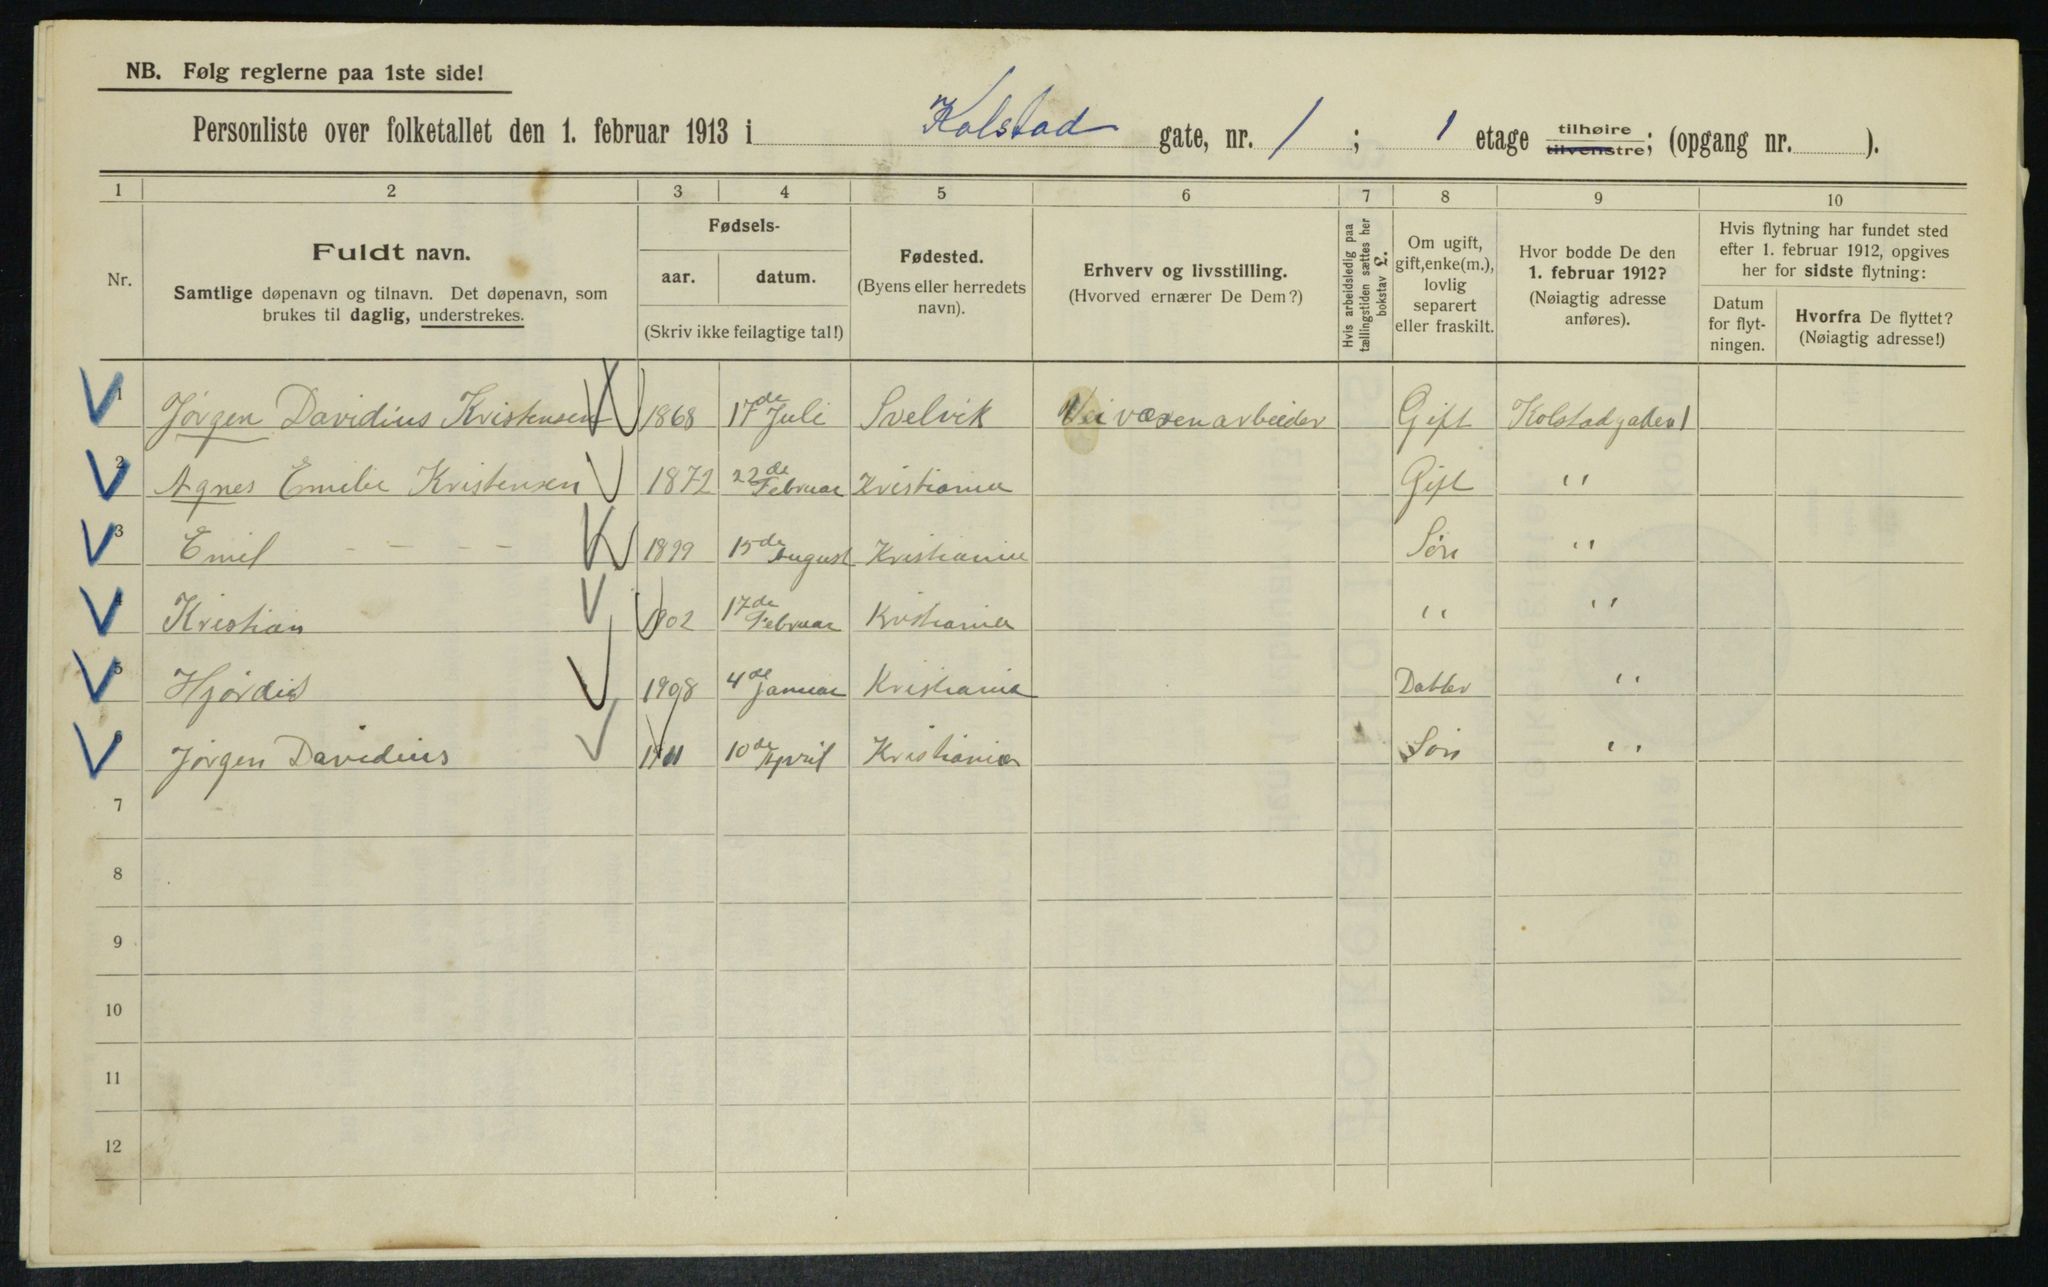 NB. Følg reglerne paa 1ste side!
Personliste over folketallet den 1. februar 1913 i Kolstad gate, nr. 1 ; 1 etage tilhøire tilvenstre; (opgang nr. ).
1 2 3 4 5 6 7 8 9 10
Nr.
Fuldt navn.
Samtlige døpenavn og tilnavn. Det døpenavn, som
brukes til daglig, understrekes.
Fødsels-
aar. datum.
(Skriv ikke feilagtige tal!)
Fødested.
(Byens eller herredets
navn).
Erhverv og livsstilling.
(Hvorved ernærer De Dem?)
Hvis arbeidsledig paa
tællingstiden sættes her
bokstav £.
Om ugift,
gift, enke(m.),
lovlig
separert
eller fraskilt.
Hvor bodde De den
1. februar 1912?
(Nøiagtig adresse
anføres).
Hvis flytning har fundet sted
efter 1. februar 1912, opgives
her for sidste flytning:
Datum
for flyt-
ningen.
Hvorfra De flyttet?
(Nøiagtig adresse!)
1 Jørgen Davidius Kristensen 1868 17de Juli Svelvik Veivæsenarbeider Gift Kolstadgaden 1
2 Agnes Emilie Kristensen 1872 22de Februar Kristiania Gift "
3 Emil - - - - 1899 15de August Kristiania Søn "
4 Kristian 1902 17de Februar Kristiania " "
5 Hjørdis 1908 4de Januar Kristiania Datter "
6 Jørgen Davidius 1911 10de April Kristiania Søn "
7
8
9
10
11
12